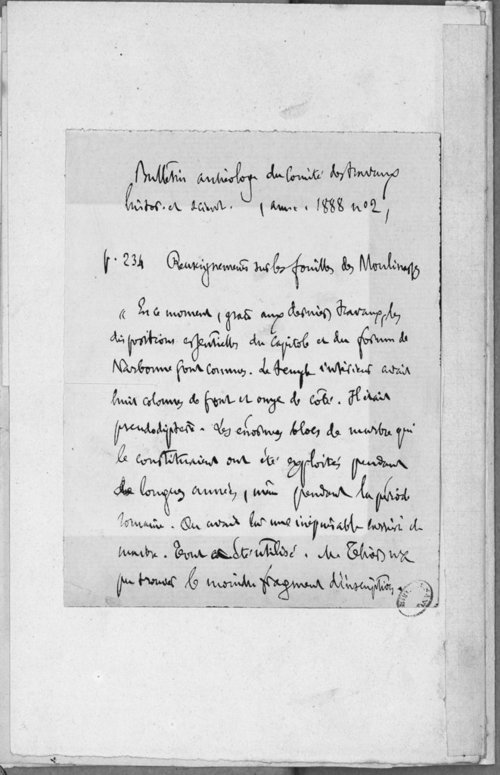 Bulletin archéolog. du Comité des travaux
histor. et scient. (ann. 1888 n° 2)
p. 234 Renseignements sur les fouilles des Moulinasses
« En ce moment, grâce aux derniers travaux, les
dispositions essentielles du Capitole et du forum de
Narbonne sont connues. Le temple intérieur avait
huit colonnes de front et onze de côté. Il était
pseudodiptère. Les énormes blocs de marbre qui
le constituaient ont été exploités pendant
de longues années, même pendant la période
romaine. On avait là une inépuisable carrière de
marbre. Tout a été utilisé. M. Thiers n'a
pu trouver le moindre fragment d'inscription.